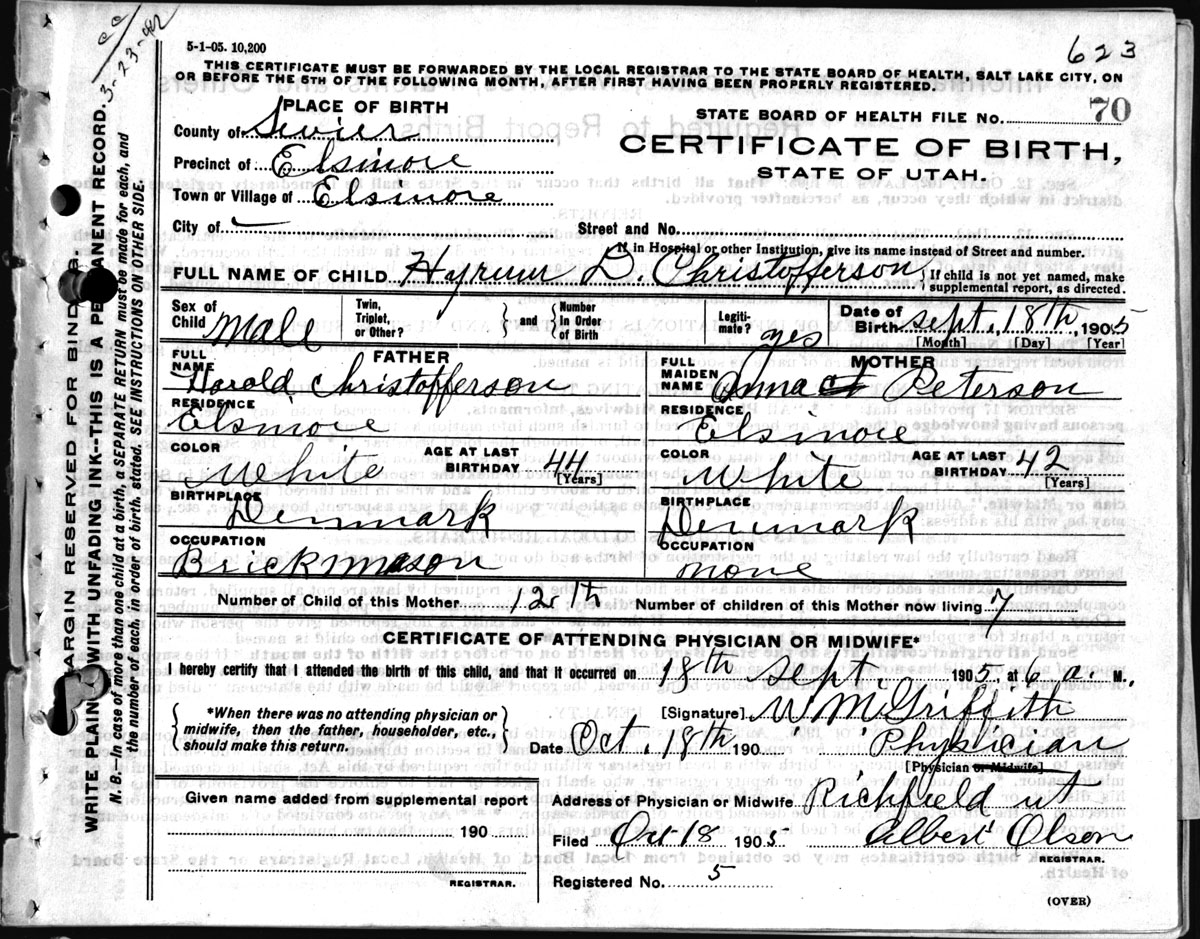 3-23-42
5-1-05. 10,200
623
THIS CERTIFICATE MUST BE FORWARDED BY THE LOCAL REGISTRAR TO THE STATE BOARD OF HEALTH, SALT LAKE CITY, ON
OR BEFORE THE 5TH OF THE FOLLOWING MONTH, AFTER FIRST HAVING BEEN PROPERLY REGISTERED.
PLACE OF BIRTH
STATE BOARD OF HEALTH FILE NO. 70
County of Sevier
CERTIFICATE OF BIRTH,
Precinct of Elsinore
STATE OF UTAH.
Town or Village of Elsinore
City of Street and No.
If in Hospital or other Institution, give its name instead of Street and number.
FULL NAME OF CHILD Hyrum D. Christofferson } If child is not yet named, make
supplemental report, as directed.
Sex of Child Male Twin, Triplet, or Other? } and { Number in Order of Birth Legiti-mate? yes Date of Birth sept. 18th, 1905
[Month] [Day] [Year]
FATHER
FULL NAME Harold Christofferson
RESIDENCE
Elsinore
COLOR White AGE AT LAST BIRTHDAY 44 [Years]
BIRTHPLACE
Denmark
OCCUPATION
Brickmason
MOTHER
FULL MAIDEN NAME Anna Peterson
RESIDENCE
Elsinore
COLOR White AGE AT LAST BIRTHDAY 42 [Years]
BIRTHPLACE
Denmark
OCCUPATION
none
Number of Child of this Mother 12th Number of children of this Mother now living 7
CERTIFICATE OF ATTENDING PHYSICIAN OR MIDWIFE*
I hereby certify that I attended the birth of this child, and that it occurred on 18th sept. 1905, at 6 a. M.
{ *When there was no attending physician or
midwife, then the father, householder, etc.,
should make this return. }
[Signature] W M Griffith
Date Oct. 18th 190 Physician
[Physician or Midwife]
Given name added from supplemental report
190
REGISTRAR.
Address of Physician or Midwife Richfield ut
Filed Oct 18 1905 Albert Olson
REGISTRAR.
Registered No. 5
(OVER)
MARGIN RESERVED FOR BINDER.
WRITE PLAINLY WITH UNFADING INK--THIS IS A PERMANENT RECORD.
N. B.—In case of more than one child at a birth, a SEPARATE RETURN must be made for each, and
the number of each, in order of birth, stated. SEE INSTRUCTIONS ON OTHER SIDE.